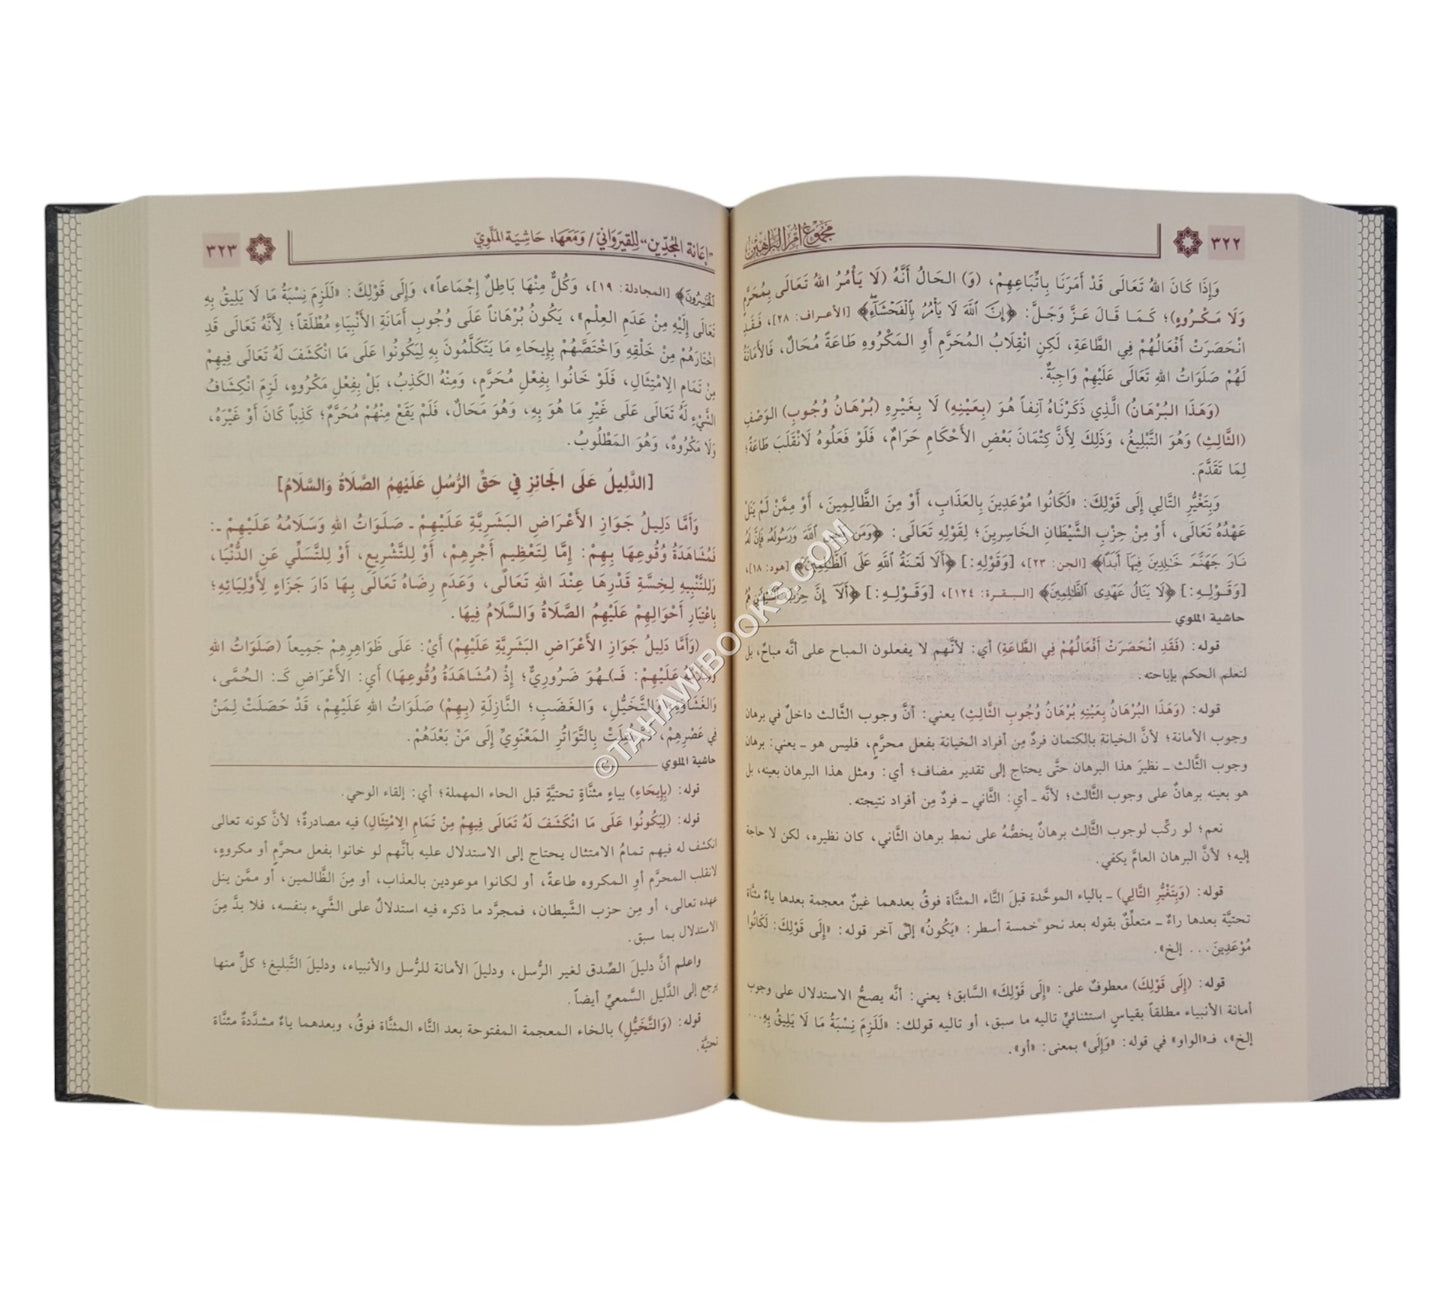 ٣٢٢
مجموع أم البراهين
وَإِذَا كَانَ اللهُ تَعَالَى قَدْ أَمَرَنَا بِاتِّبَاعِهِمْ، (وَ) الحَالُ أَنَّهُ (لَا يَأْمُرُ اللهُ تَعَالَى بِمُحَرَّمٍ
وَلَا مَكْرُوهٍ)؛ كَمَا قَالَ عَزَّ وَجَلَّ: ﴿إِنَّ اللَّهَ لَا يَأْمُرُ بِالْفَحْشَاءِ﴾ [الأعراف: ٢٨]، فَقَدِ
انْحَصَرَتْ أَفْعَالُهُمْ فِي الطَّاعَةِ، لَكِنِ انْقِلَابُ المُحَرَّمِ أَوِ المَكْرُوهِ طَاعَةً مُحَالٌ، فَالأَمَانَةُ
لَهُمْ صَلَوَاتُ اللهِ تَعَالَى عَلَيْهِمْ وَاجِبَةٌ.
(وَهَذَا البُرْهَانُ) الَّذِي ذَكَرْنَاهُ آنِفاً هُوَ (بِعَيْنِهِ) لَا بِغَيْرِهِ (بُرْهَانُ وُجُوبِ) الوَصْفِ
(الثَّالِثِ) وَهُوَ التَّبْلِيغُ، وَذَلِكَ لِأَنَّ كِتْمَانَ بَعْضِ الأَحْكَامِ حَرَامٌ، فَلَوْ فَعَلُوهُ لَانْقَلَبَ طَاعَةً؛
لِمَا تَقَدَّمَ.
وَبِتَغْيُرِ التَّالِي إِلَى قَوْلِكَ: «لَكَانُوا مُوْعَدِينَ بِالعَذَابِ، أَوْ مِنَ الظَّالِمِينَ، أَوْ مِمَّنْ لَمْ يَنَلْ
عَهْدُهُ تَعَالَى، أَوْ مِنْ حِزْبِ الشَّيْطَانِ الخَاسِرِينَ؛ لِقَوْلِهِ تَعَالَى: ﴿وَمَن اللَّهَ وَرَسُولَهُ فَإِنَّ لَهُ
نَارَ جَهَنَّمَ خَالِدِينَ فِيهَا أَبَدًا﴾ [الجن: ٢٣]، [وَقَوْلِهِ:] ﴿أَلَا لَعْنَةُ اللَّهِ عَلَى الظَّالِمِينَ﴾ [هود: ١٨]،
[وَقَوْلِهِ:] ﴿لَا يَنَالُ عَهْدِي الظَّالِمِينَ﴾ [البقرة: ١٢٤]، [وَقَوْلِهِ:] ﴿أَلَا إِنَّ حِزْبَ الشَّيْطَانِ هُمُ
حاشية الملوي
قوله: (فَقَدِ انْحَصَرَتْ أَفْعَالُهُمْ فِي الطَّاعَةِ) أي: لأنَّهم لا يفعلون المباح على أنَّه مباح، بل
لتعلم الحكم بإباحته.
قوله: (وَهَذَا البُرْهَانُ بِعَيْنِهِ بُرْهَانُ وُجُوبِ الثَّالِثِ) يعني: أنَّ وجوب الثَّالث داخلٌ في برهان
وجوب الأمانة؛ لأنَّ الخيانة بالكتمان فردٌ مِن أفراد الخيانة بفعل محرَّمٍ، فليس هو ـ يعني: برهان
وجوب الثَّالث ـ نظيرَ هذا البرهان حتَّى يحتاج إلى تقدير مضاف؛ أي: ومثل هذا البرهان بعينه، بل
هو بعينه برهانٌ على وجوب الثَّالث؛ لأنَّه ـ أي: الثَّاني ـ فردٌ مِن أفراد نتيجته.
نعم؛ لو ركِّب لوجوب الثَّالث برهانٌ يخصُّهُ على نمط برهان الثَّاني، كان نظيره، لكن لا حاجة
إليه؛ لأنَّ البرهان العامَّ يكفي.
قوله: (وَبِتَغْيُرِ التَّالِي) ـ بالباء الموحَّدة قبلَ التَّاء المثنَّاة فوقُ بعدهما غينٌ معجمة بعدها ياءٌ مثنَّاة
تحتيَّة بعدها راءٌ ـ متعلِّقٌ بقوله بعد نحو خمسة أسطر: «يَكُونُ» إلى آخر قوله: «إِلَى قَوْلِكَ: لَكَانُوا
مُوْعَدِينَ... إلخ».
قوله: (إِلَى قَوْلِكَ) معطوفٌ على: «إِلَى قَوْلِكَ» السَّابق؛ يعني: أنَّه يصحُّ الاستدلال على وجوب
أمانة الأنبياء مطلقاً بقياسٍ استثنائيٍّ تاليه ما سبق، أو تاليه قولك: «لَلَزِمَ نِسْبَةُ مَا لَا يَلِيقُ بِهِ...
إلخ»، فـ«الواو» في قوله: «وَإِلَى» بمعنى: «أو».
"إعانة المجدّين" للقيرواني / ومعها: حاشية الملوي
٣٢٣
الْخَاسِرُونَ﴾ [المجادلة: ١٩]، وَكُلٌّ مِنْهَا بَاطِلٌ إِجْمَاعاً»، وَإِلَى قَوْلِكَ: «لَلَزِمَ نِسْبَةُ مَا لَا يَلِيقُ بِهِ
تَعَالَى إِلَيْهِ مِنْ عَدَمِ العِلْمِ»، يَكُونُ بُرْهَاناً عَلَى وُجُوبِ أَمَانَةِ الأَنْبِيَاءِ مُطْلَقاً؛ لِأَنَّهُ تَعَالَى قَدِ
اخْتَارَهُمْ مِنْ خَلْقِهِ وَاخْتَصَّهُمْ بِإِيحَاءِ مَا يَتَكَلَّمُونَ بِهِ لِيَكُونُوا عَلَى مَا انْكَشَفَ لَهُ تَعَالَى فِيهِمْ
مِنْ تَمَامِ الِامْتِثَالِ، فَلَوْ خَانُوا بِفِعْلِ مُحَرَّمٍ، وَمِنْهُ الكَذِبُ، بَلْ بِفِعْلِ مَكْرُوهٍ، لَزِمَ انْكِشَافُ
الشَّيْءِ لَهُ تَعَالَى عَلَى غَيْرِ مَا هُوَ بِهِ، وَهُوَ مَحَالٌ، فَلَمْ يَقَعْ مِنْهُمْ مُحَرَّمٌ؛ كَذِباً كَانَ أَوْ غَيْرَهُ،
وَلَا مَكْرُوهٌ، وَهُوَ المَطْلُوبُ.
[الدَّلِيلُ عَلَى الجَائِزِ فِي حَقِّ الرُّسُلِ عَلَيْهِمُ الصَّلَاةُ وَالسَّلَامُ]
وَأَمَّا دَلِيلُ جَوَازِ الأَعْرَاضِ البَشَرِيَّةِ عَلَيْهِمْ ـ صَلَوَاتُ اللهِ وَسَلَامُهُ عَلَيْهِمْ ـ:
فَمُشَاهَدَةُ وُقُوعِهَا بِهِمْ: إِمَّا لِتَعْظِيمِ أَجْرِهِمْ، أَوْ لِلتَّشْرِيعِ، أَوْ لِلتَّسَلِّي عَنِ الدُّنْيَا،
وَلِلتَّنْبِيهِ لِخِسَّةِ قَدْرِهَا عِنْدَ اللهِ تَعَالَى، وَعَدَمِ رِضَاهُ تَعَالَى بِهَا دَارَ جَزَاءٍ لِأَوْلِيَائِهِ؛
بِاعْتِبَارِ أَحْوَالِهِمْ عَلَيْهِمُ الصَّلَاةُ وَالسَّلَامُ فِيهَا.
(وَأَمَّا دَلِيلُ جَوَازِ الأَعْرَاضِ البَشَرِيَّةِ عَلَيْهِمْ) أَيْ: عَلَى ظَوَاهِرِهِمْ جَمِيعاً (صَلَوَاتُ اللهِ
عَلَيْهِمْ: فَـ)ـهُوَ ضَرُورِيٌّ؛ إِذْ (مُشَاهَدَةُ وُقُوعِهَا) أَيِ: الأَعْرَاضِ كَـ: الحُمَّى،
وَالتَّخَيُّلِ، وَالغَضَبِ؛ النَّازِلَةِ (بِهِمْ) صَلَوَاتُ اللهِ عَلَيْهِمْ، قَدْ حَصَلَتْ لِمَنْ
فِي عَصْرِهِمْ، بِالتَّوَاتُرِ المَعْنَوِيِّ إِلَى مَنْ بَعْدَهُمْ.
حاشية الملوي
قوله: (بِإِيحَاءِ) بياءٍ مثنَّاةٍ تحتيَّةٍ قبل الحاء المهملة؛ أي: إلقاء الوحي.
قوله: (لِيَكُونُوا عَلَى مَا انْكَشَفَ لَهُ تَعَالَى فِيهِمْ مِنْ تَمَامِ الِامْتِثَالِ) فيه مصادرةٌ؛ لأنَّ كونه تعالى
انكشف له فيهم تمامُ الامتثال يحتاج إلى الاستدلال عليه بأنَّهم لو خانوا بفعل محرَّم أو مكروهٍ،
لانقلب المحرَّم أوِ المكروه طاعةً، أو لكانوا موعودين بالعذاب، أو مِنَ الظَّالمين، أو ممَّن ينل
عهده تعالى، أو مِن حزب الشَّيطان، فمجرَّد ما ذكره فيه استدلالٌ على الشَّيء بنفسه، فلا بدَّ مِنَ
الاستدلال بما سبق.
واعلم أنَّ دليلَ الصِّدق لغير الرُّسل، ودليلَ الأمانة للرُّسل والأنبياء، ودليلَ التَّبليغ؛ كلٌّ منها
يرجع إلى الدَّليل السَّمعيِّ أيضاً.
قوله: (وَالتَّخَيُّلِ) بالخاء المعجمة المفتوحة بعد التَّاء المثنَّاة فوقُ، وبعدهما ياءٌ مشدَّدةٌ مثنَّاة
تحتيَّة.
© TAHAWIBOOKS.COM